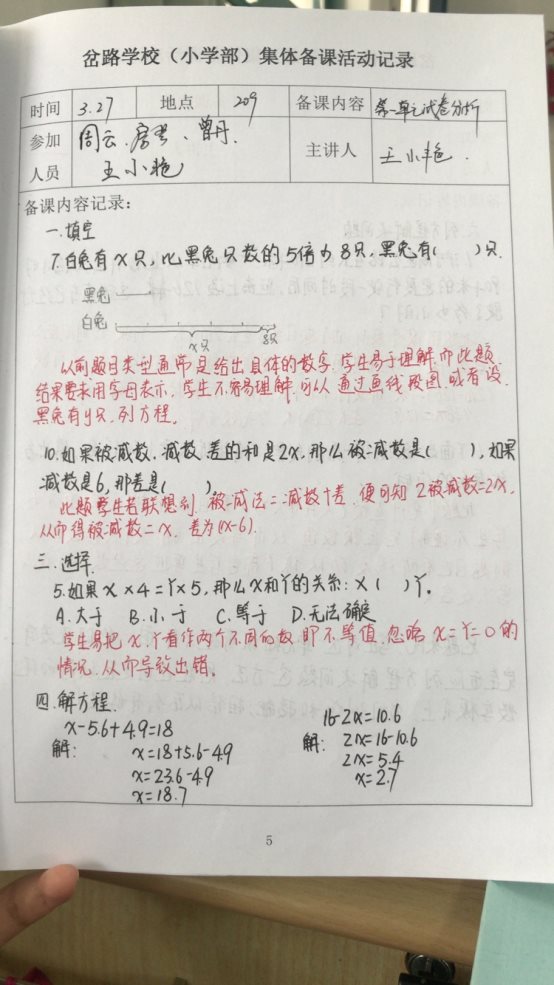 岔路学校（小学部）集体备课活动记录
时间 3.27 地点 209 备课内容 第一单元试卷分析
参加人员 周云、 、曾丹、王小艳 主讲人 王小艳
备课内容记录：
一.填空
7.白兔有x只，比黑兔只数的5倍少8只，黑兔有( )只.
黑兔
白兔
x只 8只
以前题目类型通常是给出具体的数字,学生易于理解,而此题
结果要求用字母表示,学生不容易理解,可以通过画线段图,或者设
黑兔有y只,列方程。
10.如果被减数、减数、差的和是2x,那么被减数是( ),如果
减数是6,那差是( )
此题学生若联想到被减法=减数+差,便可知2被减数=2x,
从而得被减数=x,差为(x-6).
三.选择.
5.如果x×4=Y×5,那么x和Y的关系:x( )Y.
A.大于 B.小于 C.等于 D.无法确定
学生易把x,Y看作两个不同的数,即不等值,忽略x=Y=0的
情况,从而导致出错.
四.解方程.
x-5.6+4.9=18 16-2x=10.6
解: x=18+5.6-4.9 解: 2x=16-10.6
x=23.6-4.9 2x=5.4
x=18.7 x=2.7
5